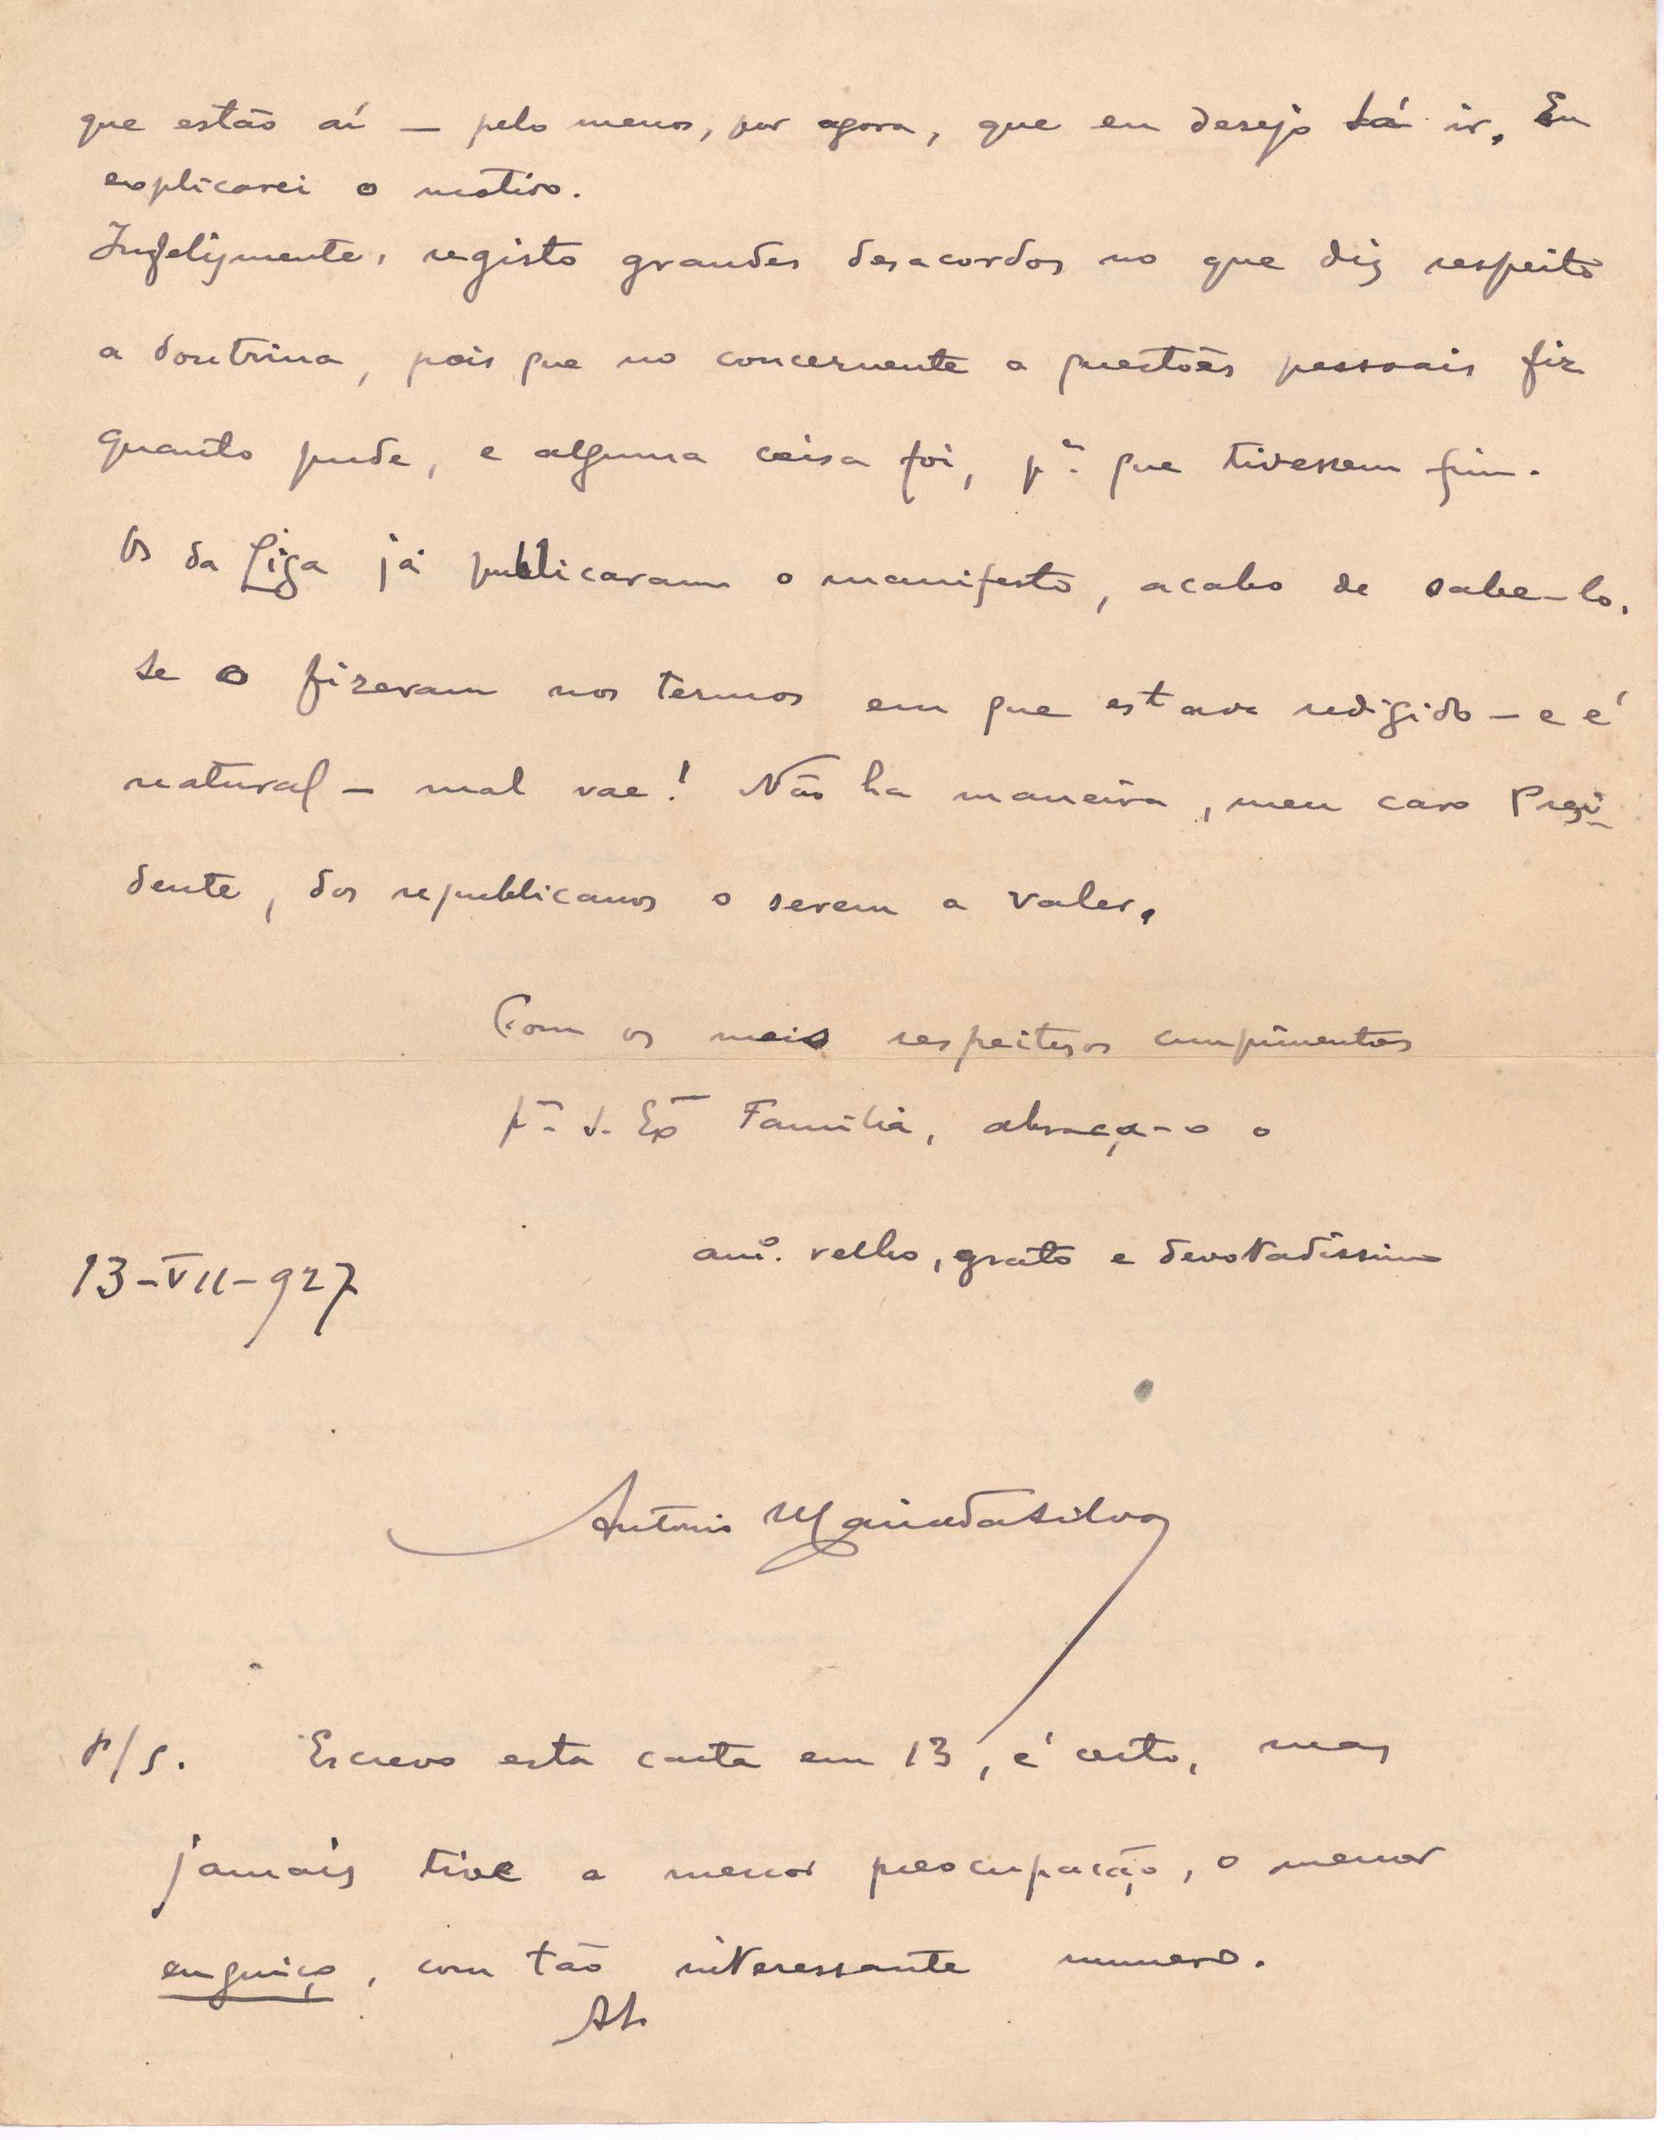 que estão aí — pelo menos, por agora, que eu desejo lá ir. Eu
explicarei o motivo.
Infelizmente, registo grandes desacordos no que diz respeito
a doutrina, pois que no concernente a questões pessoais fiz
quanto pude, e alguma coisa foi, pª. que tivessem fim.
Os da Liga já publicaram o manifesto, acabo de sabe-lo.
Se o fizeram nos termos em que estava redigido — e é
natural — mal vae! Não ha maneira, meu caro Presi-
dente, dos republicanos o serem a valer.
Com os meis respeitosos cumprimentos
pª. S. Exª Familia, abraça-o o
amº. velho, grato e devotadissimo
13-VII-927
Antonio Maria da Silva
P/S. Escrevo esta carta em 13, é certo, mas
jamais tive a menor preocupação, o menor
enguiço, com tão interessante numero.